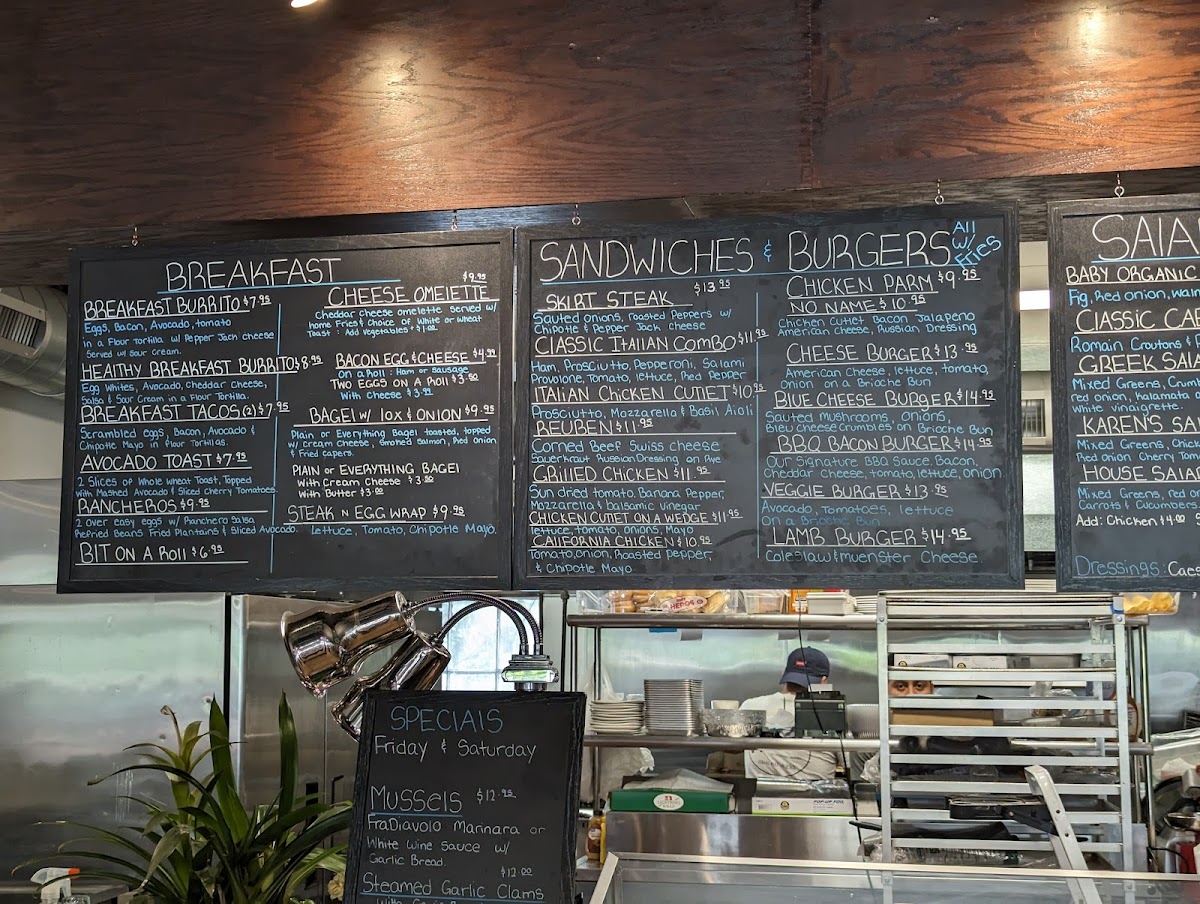 BREAKFAST
BREAKFAST BURRITO $7.95
Eggs, Bacon, Avocado, tomato
in a Flour tortilla w/ Pepper Jack cheese
Served w/ Sour Cream.
HEAlTHY BREAKFAST BURRITO $8.95
Egg Whites, Avocado, Cheddar Cheese,
Salsa & Sour Cream in a Flour Tortilla.
BREAKFAST TACOS (2) $7.95
Scrambled eggs, Bacon, Avocado &
Chipotle Mayo in Flour Tortillas.
AVOCADO TOAST $7.95
2 Slices of Whole wheat Toast, Topped
With Mashed Avocado & Sliced Cherry Tomatoes.
RANCHEROS $9.95
2 over easy eggs w/ Ranchero Salsa
Refried Beans Fried Plantains & Sliced Avocado.
BlT ON A Roll $6.95
$9.95
CHEESE OMElETTE
Cheddar Cheese omelette Served w/
home Fries & Choice of White or Wheat
Toast : Add Vegetables $1.00
BACON EGG & CHEESE $4.99
On a Roll : Ham or Sausage
TWO EGGS ON A Roll $3.50
With Cheese $3.99
BAGEl W/ lOX & ONION $9.95
Plain or Everything Bagel toasted, topped
w/ Cream Cheese, Smoked Salmon, Red onion
& Fried capers.
PlAIN or EVERYTHING BAGEl
With Cream Cheese $3.50
With Butter $3.00
STEAK N EGG WRAP $9.95
lettuce, Tomato, Chipotle Mayo.
SANDWICHES & BURGERS
All
w/
Fries
$13.95
SKIRT STEAK
Sauted onions, roasted Peppers w/
Chipotle & Pepper Jack Cheese
CLASSIC ITALIAN COMBO $11.95
Ham, Prosciutto, Pepperoni, Salami
Provolone, Tomato, lettuce, Red Pepper
ITALIAN CHICKEN CUTlET $10.95
Prosciutto, Mozzarella & Basil Aioli
REUBEN $11.95
Corned Beef Swiss cheese
Sauerkraut Russian Dressing on Rye
GRIllED CHICKEN $11.95
Sun dried tomato, Banana Pepper,
Mozzarella & balsamic vinegar
CHICKEN CUTlET ON A WEDGE $11.95
lettuce, tomato, onions, Mayo
CAlIFORNIA CHICKEN $10.95
Tomato, onion, Roasted Pepper,
& Chipotle Mayo
CHICKEN PARM $9.95
NO NAME $10.95
Chicken Cutlet Bacon Jalapeno
American Cheese, Russian Dressing
CHEESE BURGER $13.95
American Cheese, lettuce, tomato,
Onion on a Brioche Bun
BLUE CHEESE BURGER $14.95
Sauted Mushrooms, Onions,
Bleu Cheese Crumbles on Brioche Bun
BBQ BACON BURGER $14.95
Our Signature BBQ Sauce, Bacon,
Cheddar Cheese, tomato, lettuce, onion
VEGGIE BURGER $13.95
Avocado, Tomatoes, lettuce
on a Brioche Bun
LAMB BURGER $14.95
Coleslaw & Muenster Cheese
SAlA
BABY ORGANIC
Fig, Red onion, Waln
CLASSIC CAE
Romain Croutons &
GREEK SALA
Mixed Greens, Crum
red onion, Kalamata
White vinaigrette.
KAREN'S SA
Mixed Greens, Chick
Red onion Cherry Tom
HOUSE SALA
Mixed Greens, Red o
Carrots & Cucumbers
Add: Chicken $4.00
Dressings: Caes
SPECIAlS
Friday & Saturday
MUSSElS $12.95
FraDiavolo Marinara or
White Wine Sauce w/
Garlic Bread.
$12.00
Steamed Garlic Clams